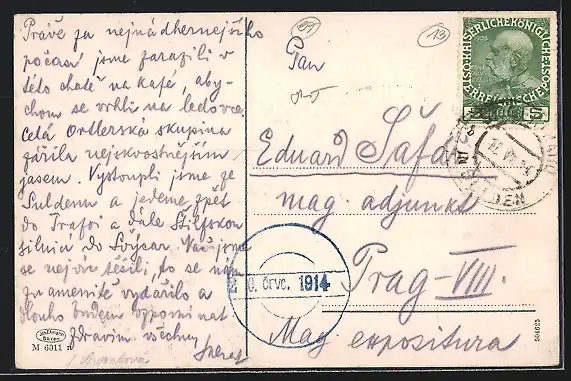 Právě za nejnádhernejšího
počasí jsme zarazili v
této chatě na kafé, aby-
chom se vrhli na ledovce.
Celá Ortlerská skupina
zářila nejskvostnějším
jasem. Vystoupli jsme ze
Suldenu a jedeme zpět
do Trafoi a dále Stilfskou
silnicí do Švýcar. jsme
se nejvíc těšili, to se nám
znamenitě vydařilo a
dlouho budem vzpomínat
Zdravím všechny
JohFMann
Bozen
M 6011 r
59
13
Pan
Eduard Šafář
mag. adjunkt
Prag-VIII.
Mag expositura
0. črvc. 1914
KAISERLICHE KÖNIGLICHE
ÖSTERREICHISCHE
5 HELLER 5
504625